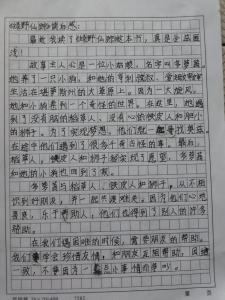 《绿野仙踪》读后感
最近我读了《绿野仙踪》这本书,真是受益匪
浅!
故事主人公是一位小姑娘,名字叫多萝茜
她养了一只小狗,和她的亨利叔叔、爱姆婶婶
生活在堪萨斯州的大草原上。因为一大旋风,
她和小狗来到一个奇怪的世界。在这里,她遇
到了没有脑的稻草人、没有心的铁皮人和胆小
的狮子。为了实现梦想,他们就一起寻找奥兹。
在途中他们遇到了很多千奇百怪的事。最后,
稻草人、铁皮人和狮子都实现了愿望,多萝茜
和她的小狗也回到了家。
多萝茜与稻草人、铁皮人和狮子,从不相
识到好朋友,并一起共渡难关,因为他们心地
善良,乐于帮助人,他们也得到了别人的许多
帮助。
在我们遇困难的时候,需要朋友的帮助。
我们要学会珍惜友情,和朋友互相帮助,团结
一致,不要因为一点小事情而争吵。